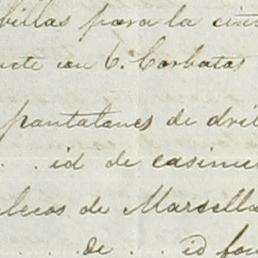 billas para la cin
ete con 6. Corbatas
pantalones de dril
. . id de casimi
lecos de Marsella
. . . de . . id fou